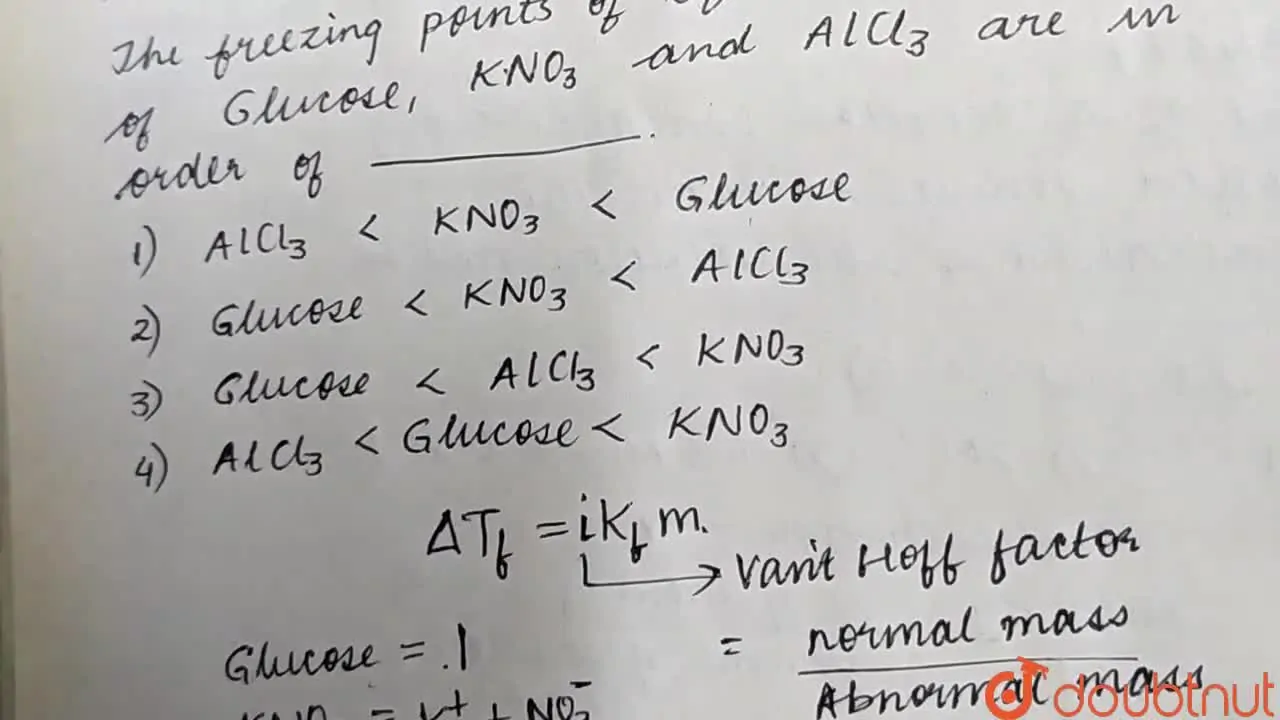 The freezing points of
of Glucose, KNO3 and AlCl3 are in
order of ________.
1) AlCl3 < KNO3 < Glucose
2) Glucose < KNO3 < AlCl3
3) Glucose < AlCl3 < KNO3
4) AlCl3 < Glucose < KNO3
ΔTf = iKf m.
→ Van't Hoff factor
= normal mass
Abnormal mass
Glucose = .1
= K+ + NO3-
doubtnut